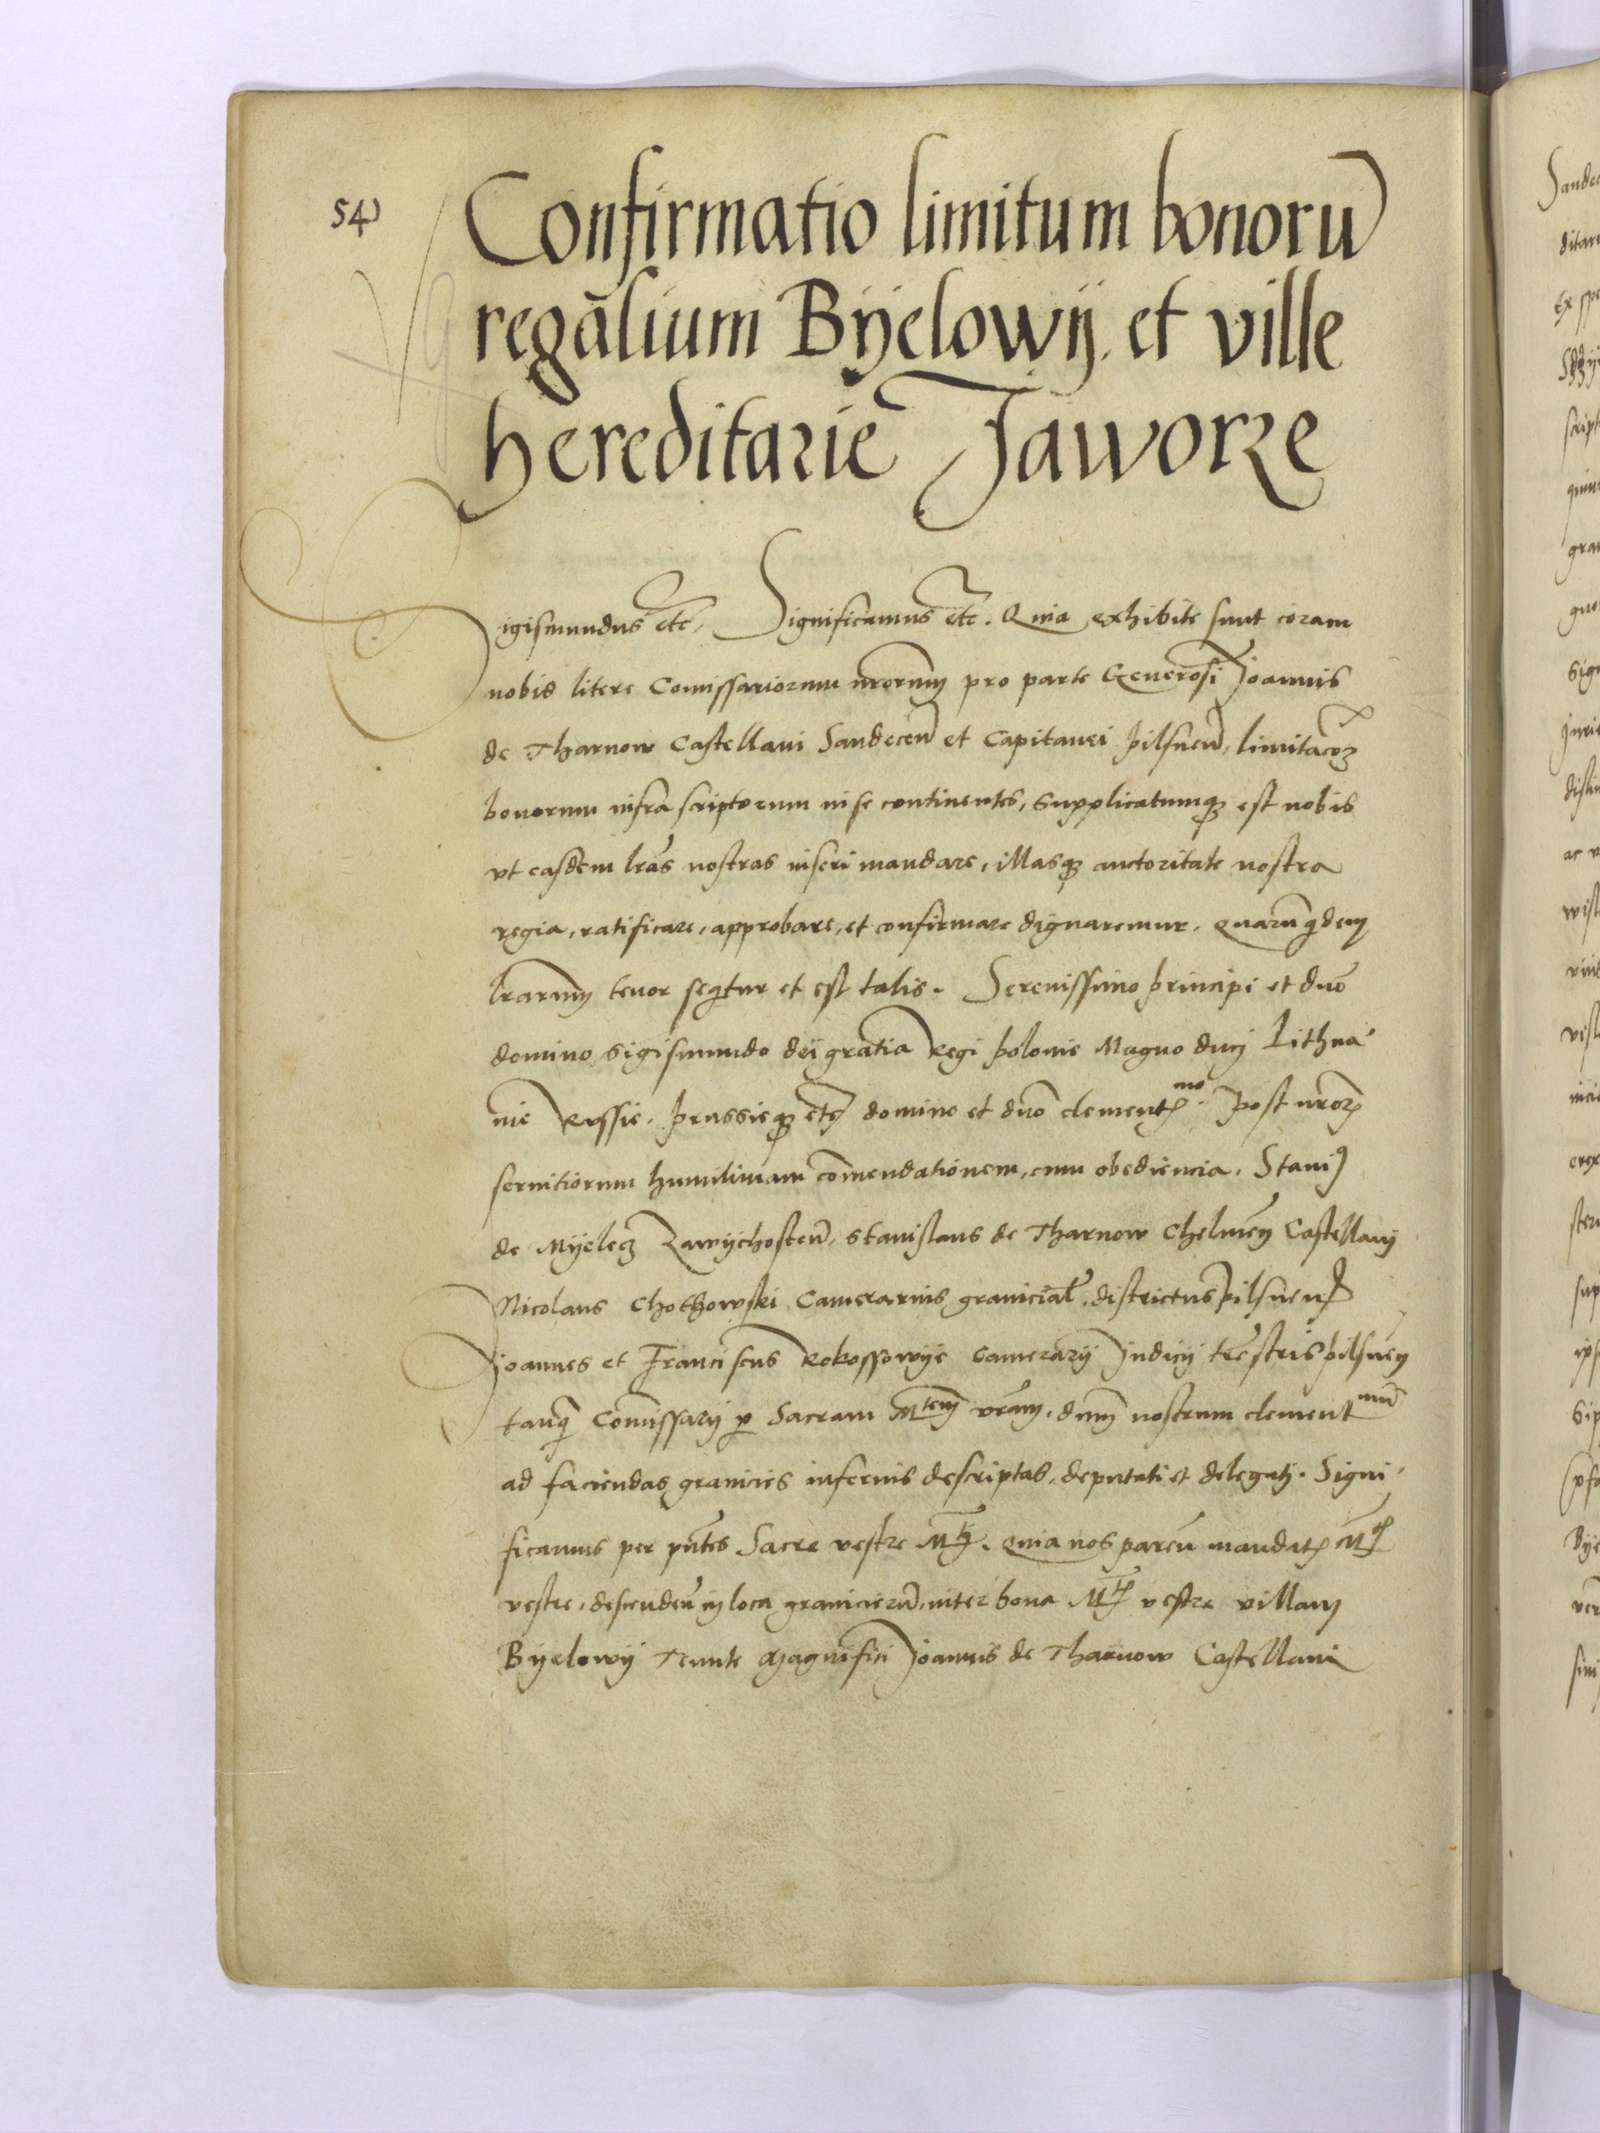 54)
Confirmatio limitum bonorū
regalium Byelowy. et ville
hereditarie Jaworze
Sigismundus etc. Significamus etc. Quia exhibite sunt coram
nobis litere Comissariorum nrorum pro parte Generosi Joannis
de Tharnow Castellani Sandecen̄ et Capitanei pilsnen̄, limitacōz
bonorum infra scriptorum in se continentes, Supplicatumqꝫ est nobis
vt easdem lrās nostras inseri mandare, illasqꝫ auctoritate nostra
regia, ratificare, approbare, et confirmare dignaremur. Quarū qdem
lrarum tenor seqtur et est talis. Serenissimo principi et dnō
domino Sigismundo dei gratia Regi polonie Magno duci Lithua
nie Russie. prussieqꝫ etc domino et dnō clementꝭ mo. Post nrorꝝ
seruitiorum humilimam cōmendationem, cum obediencia. Stanis
de Myelecz Zawychosten̄, Stanislaus de Tharnow Chelmen̄ Castellani
Nicolaus Chothowski Camerarius granicial̄. districtus pilsnen̄
Joannes et Franciscus Rokossowye Camerarij Judicij trēstris pilsnen̄
tanqꝫ Comissarij ꝑ Sacram Mtem vrām, dnum nostrum clement mū
ad faciendas granicies inferius descriptas, deputati et delegati. Signi
ficamus per pntēs Sacre vestre Mtꝭ. Quia nos paren̄ mandatꝭ Mtꝭ
vestre, descenden̄ in loca granicierū, inter bona Mtꝭ vestre villam
Byelowy Tenute Magnifici Joannis de Tharnow Castellani